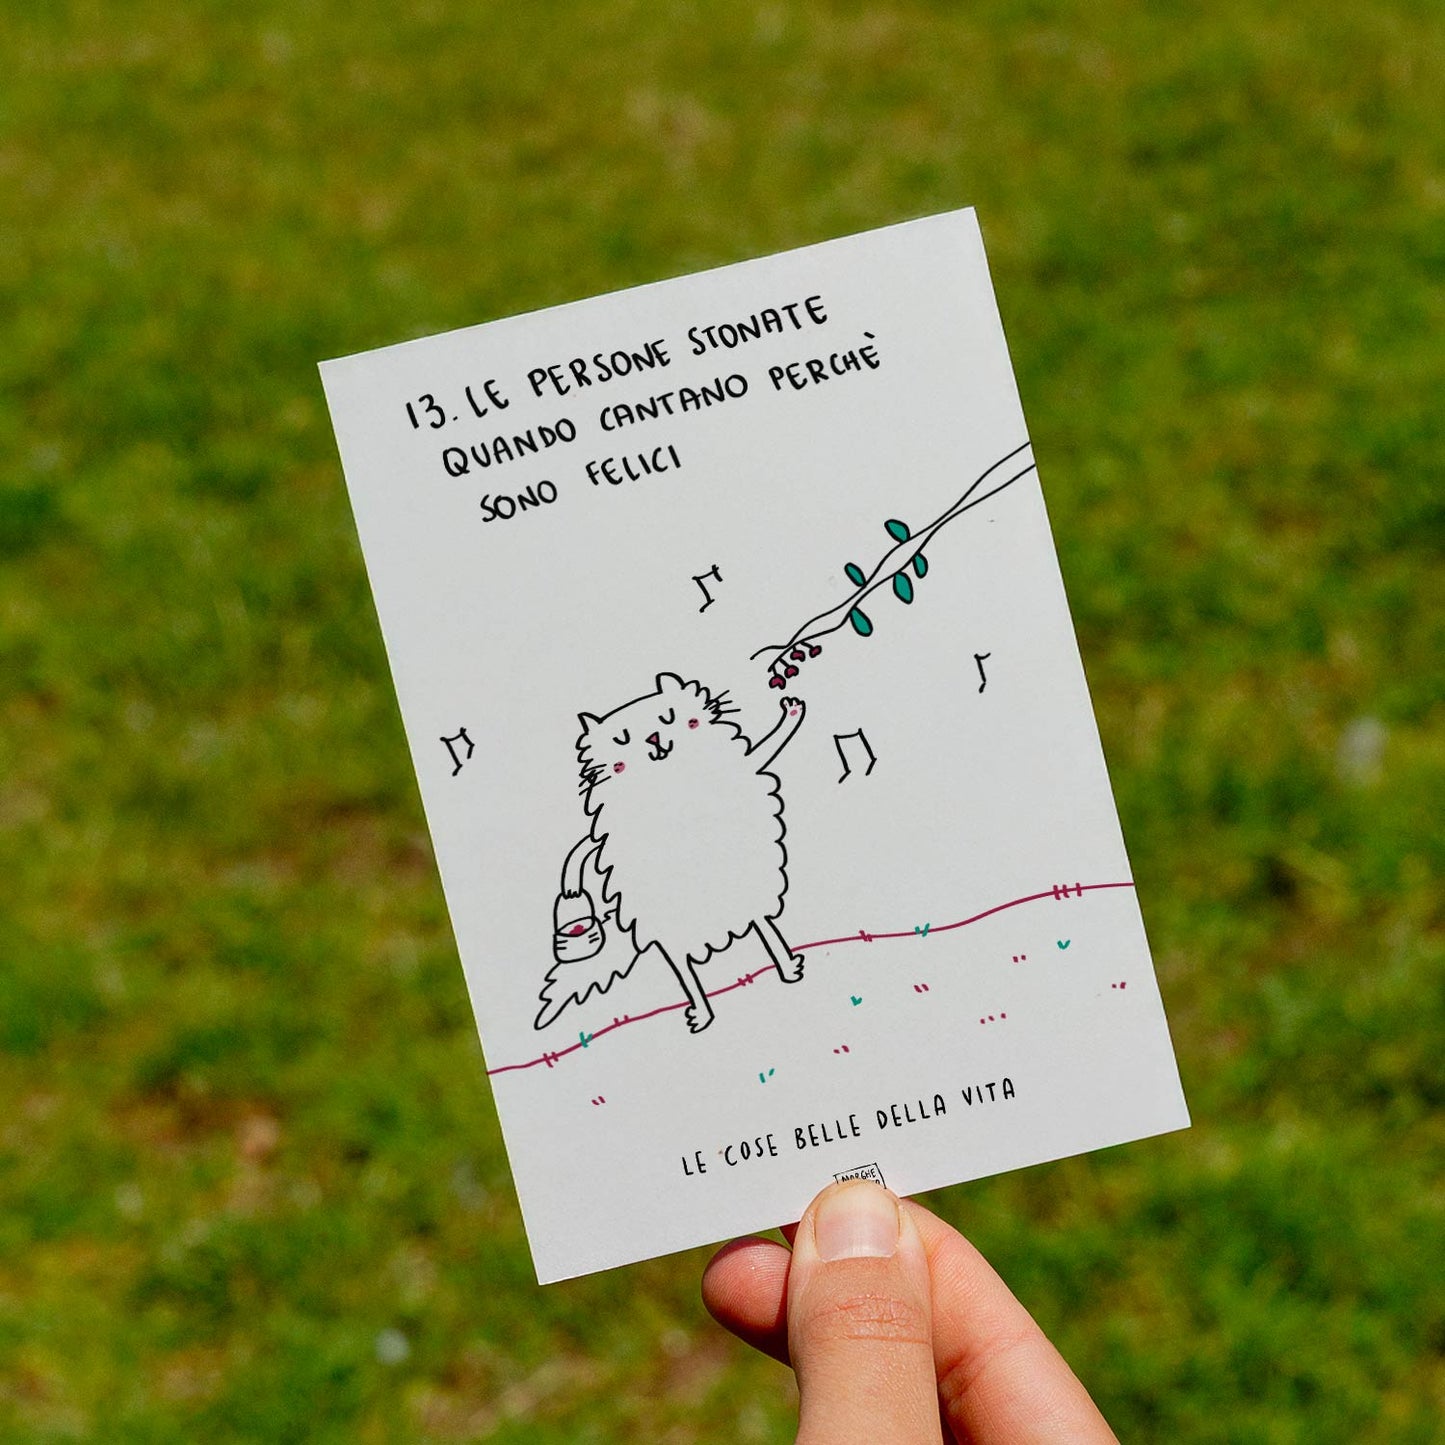 13. LE PERSONE STONATE
QUANDO CANTANO PERCHÈ
SONO FELICI
LE COSE BELLE DELLA VITA
MARGHE